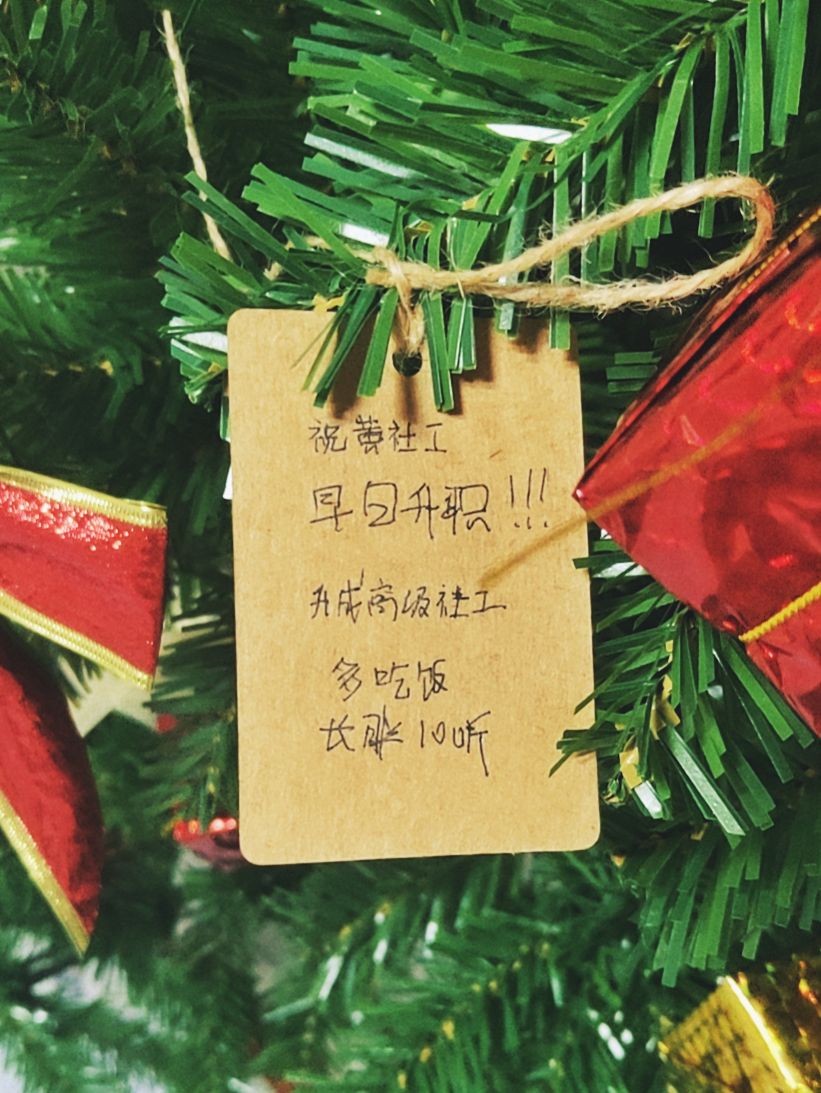 祝黄社工
早日升职!!!
升成高级社工
多吃饭
长胖10斤